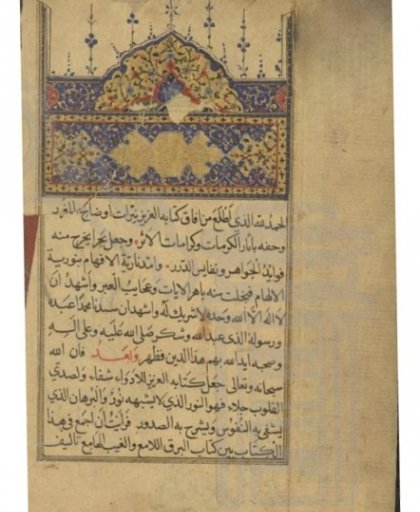 الحمد لله الذي اطلع من افاق كتابه العزيز نيرات اوضاح للغرر
وحفه باثار الكرمات وكرامات الاثر وجعل بحرا يخرج منه
فوائد الجواهر ونفايس الدرر وامد نارية الافهام بنورية
الالهام فتجلت منه باهر الايات وعجايب العبر واشهد ان
لا اله الا الله وحده لا شريك له واشهد ان سيدنا محمدا عبده
ورسوله الذي عبد الله وشكر صلى الله عليه وعلى اله
وصحبه ايد الله بهم هذا الدين فظهر وبعد فان الله
سبحانه وتعالى جعل كتابه العزيز للادواء شفاء ولصدي
القلوب جلاء فهو النور الذي لا يشبهه نور والبرهان الذي
يشفى به النفوس ويشرح به الصدور فرايت ان اجمع في هذا
الكتاب بين كتاب البرق اللامع والغيث الهامع تاليف